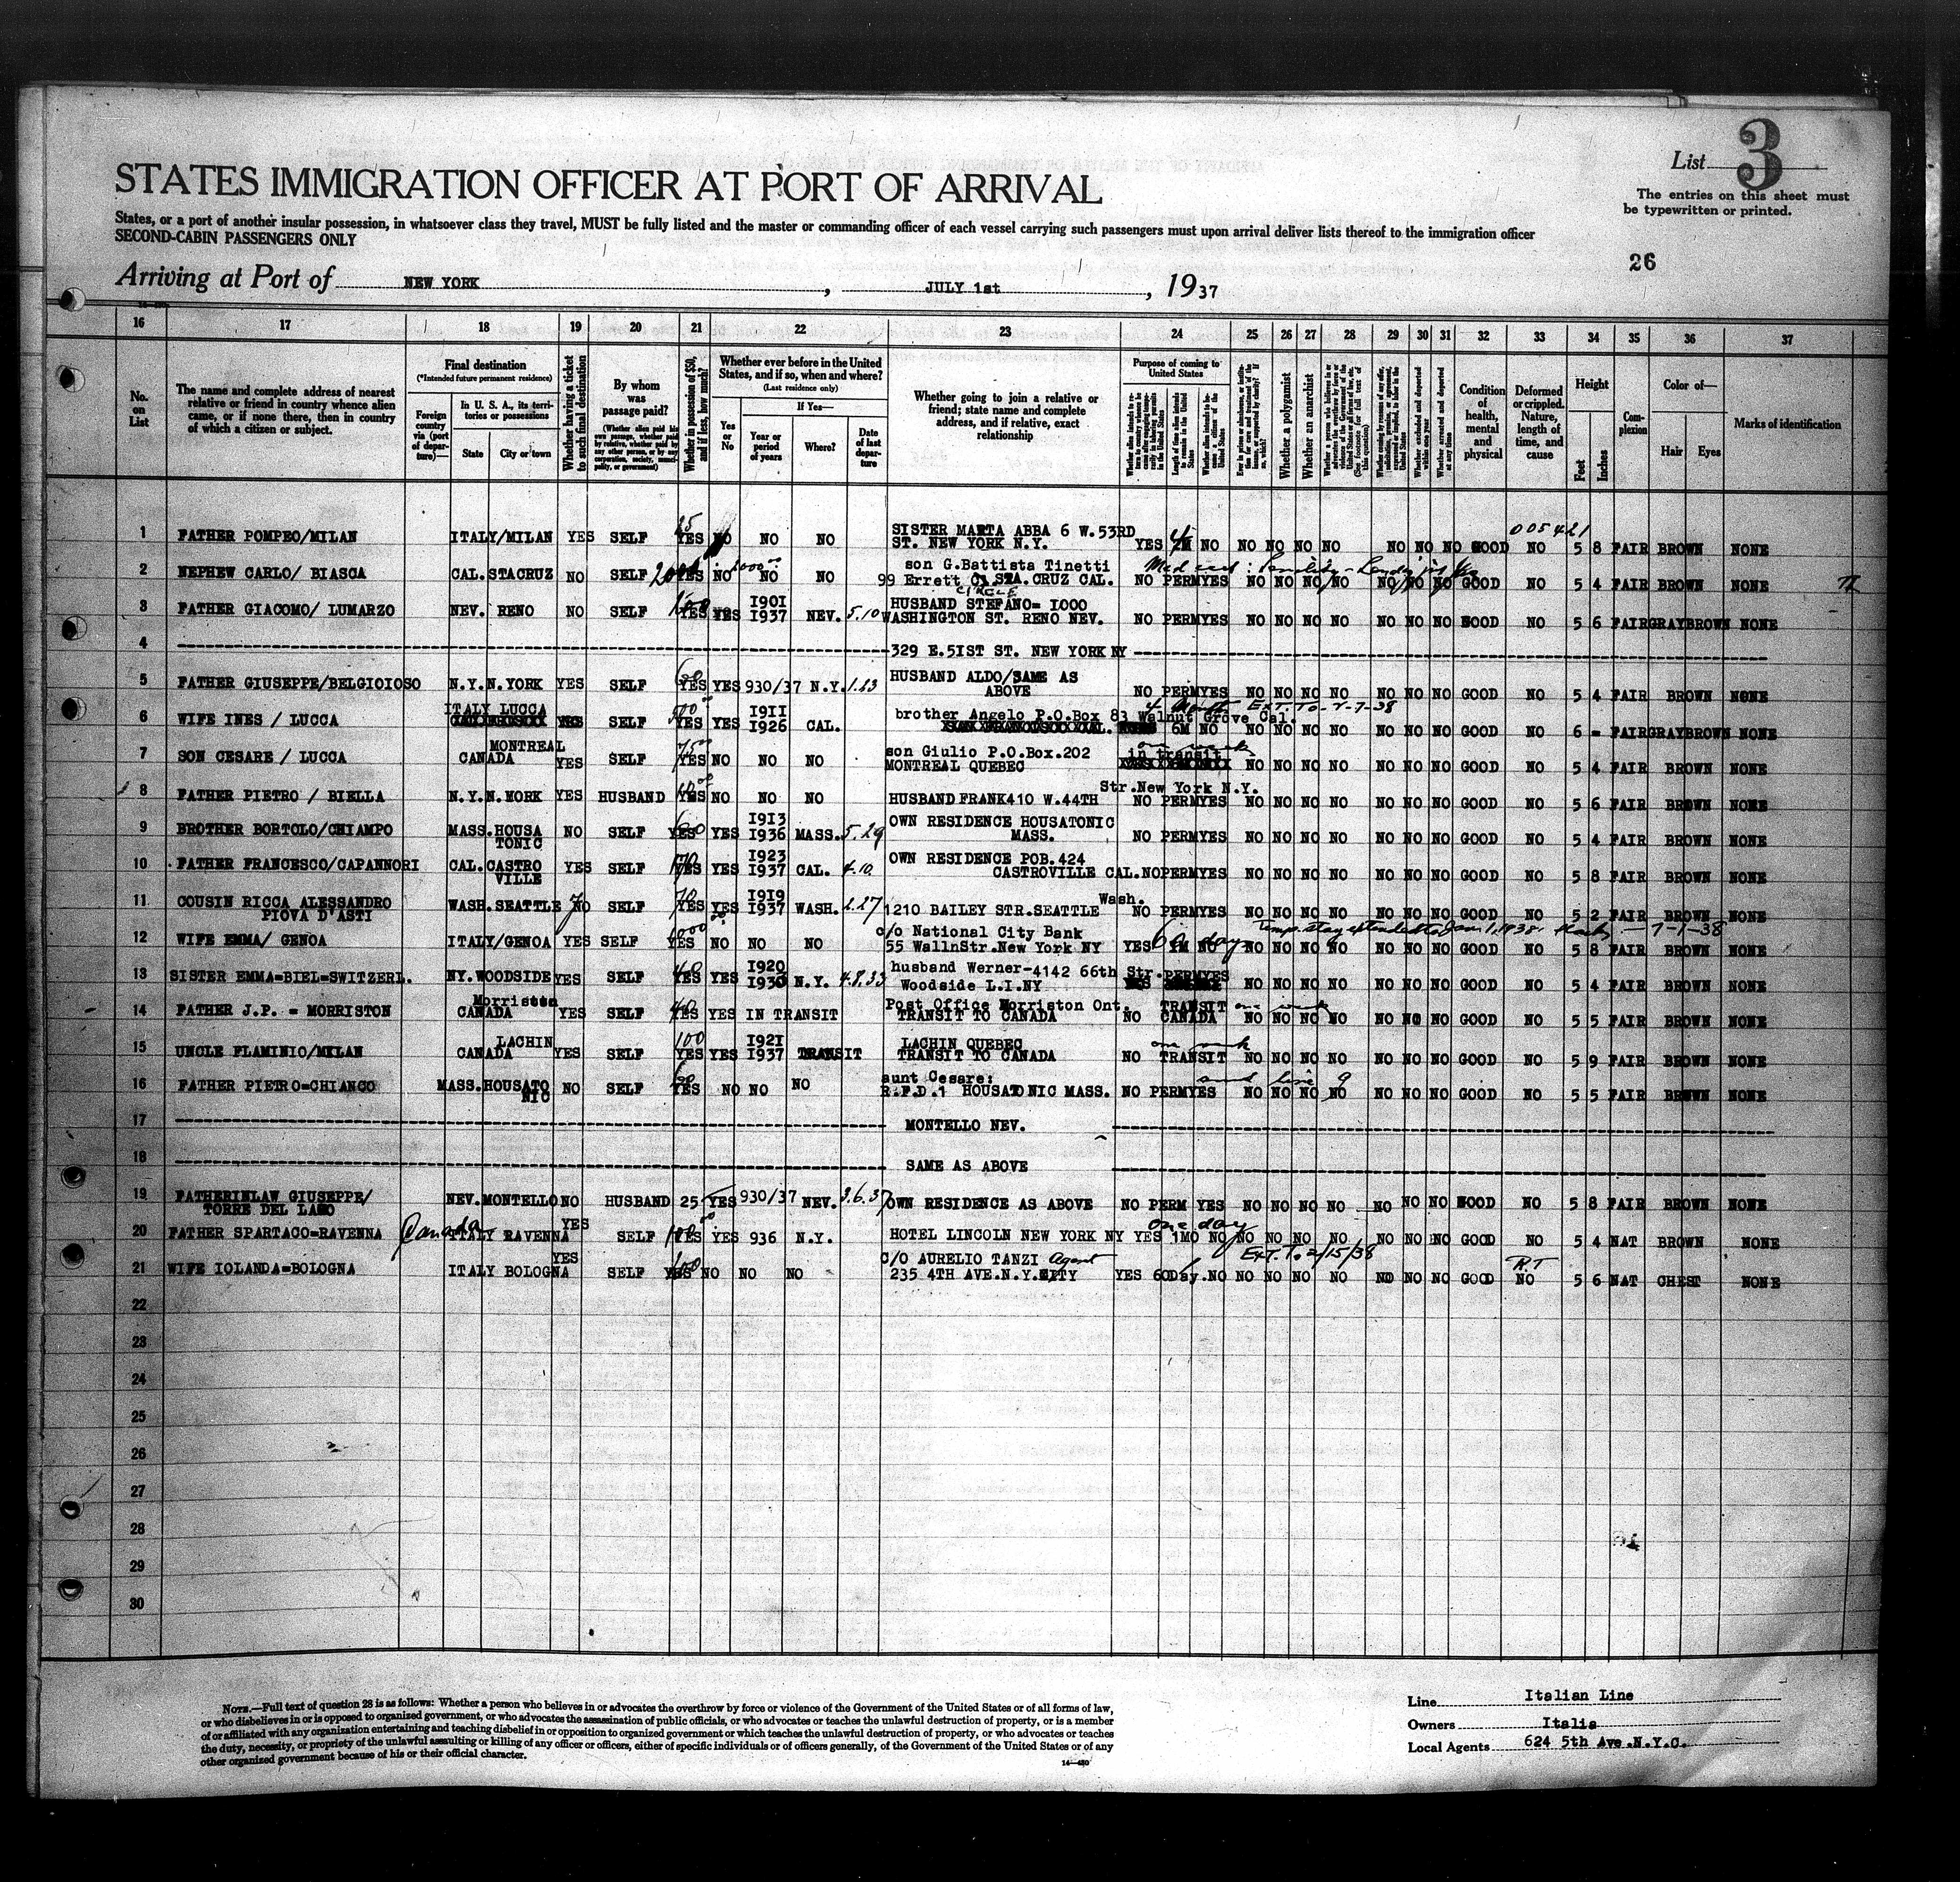 List 3
The entries on this sheet must
be typewritten or printed.
STATES IMMIGRATION OFFICER AT PORT OF ARRIVAL
States, or a port of another insular possession, in whatsoever class they travel, MUST be fully listed and the master or commanding officer of each vessel carrying such passengers must upon arrival deliver lists thereof to the immigration officer
SECOND-CABIN PASSENGERS ONLY
26
Arriving at Port of NEW YORK, JULY 1st, 1937
16 17 18 19 20 21 22 23 24 25 26 27 28 29 30 31 32 33 34 35 36 37
No. on List
The name and complete address of nearest
relative or friend in country whence alien
came, or if none there, then in country
of which a citizen or subject.
Final destination
(*Intended future permanent residence)
Foreign country via (port of departure)—
In U. S. A., its territories or possessions
State City or town
Whether having a ticket to such final destination
By whom was passage paid?
(Whether alien paid his own passage, whether paid by relative, whether paid by any other person, or by any corporation, society, municipality, or government)
Whether in possession of $50, and if less, how much?
Whether ever before in the United States, and if so, when and where?
(Last residence only)
Yes or No
If Yes—
Year or period of years
Where?
Date of last departure
Whether going to join a relative or
friend; state name and complete
address, and if relative, exact
relationship
Purpose of coming to United States
Length of time alien intends to remain in the United States
Whether a polygamist
Whether an anarchist
Whether arrested and deported at any time
Condition of health, mental and physical
Deformed or crippled. Nature, length of time, and cause
Height
Feet Inches
Complexion
Color of—
Hair Eyes
Marks of identification
1 FATHER POMPEO/MILAN ITALY/MILAN YES SELF 25 YES NO NO NO SISTER MARTA ABBA 6 W.53RD
ST. NEW YORK N.Y. YES NO NO NO NO NO NO NO NO GOOD NO 5 8 FAIR BROWN NONE
005421
2 NEPHEW CARLO/ BIASCA CAL. STACRUZ NO SELF YES NO NO NO son G.Battista Tinetti
99 Errett STA. CRUZ CAL. NO PERM YES NO NO NO NO NO NO NO GOOD NO 5 4 FAIR BROWN NONE
CIRCLE
3 FATHER GIACOMO/ LUMARZO NEV. RENO NO SELF YES YES 1901 1937 NEV. 5.10 HUSBAND STEFANO= 1000
WASHINGTON ST. RENO NEV. NO PERM YES NO NO NO NO NO NO NO GOOD NO 5 6 FAIR GRAY BROWN NONE
4 329 E.51ST ST. NEW YORK NY
5 FATHER GIUSEPPE/BELGIOIOSO N.Y. N.YORK YES SELF YES YES 930/37 N.Y. 1.23 HUSBAND ALDO/SAME AS
ABOVE NO PERM YES NO NO NO NO NO NO NO GOOD NO 5 4 FAIR BROWN NONE
6 WIFE INES / LUCCA ITALY LUCCA SELF YES YES 1911 1926 CAL. brother Angelo P.O.Box 83 Walnut Grove Cal.
4 Months EXT. TO 6M NO NO NO NO NO NO NO NO GOOD NO 6 = FAIR GRAY BROWN NONE
7 SON CESARE / LUCCA MONTREAL CANADA YES SELF YES NO NO NO son Giulio P.O.Box.202
MONTREAL QUEBEC in transit one week NO NO NO NO NO NO NO GOOD NO 5 4 FAIR BROWN NONE
8 FATHER PIETRO / BIELLA N.Y. N.YORK YES HUSBAND YES NO NO NO HUSBAND FRANK 410 W.44TH
Str.New York N.Y. NO PERM YES NO NO NO NO NO NO NO GOOD NO 5 6 FAIR BROWN NONE
9 BROTHER BORTOLO/CHIAMPO MASS. HOUSATONIC NO SELF YES YES 1913 1936 MASS. 5.29 OWN RESIDENCE HOUSATONIC
MASS. NO PERM YES NO NO NO NO NO NO NO GOOD NO 5 4 FAIR BROWN NONE
10 FATHER FRANCESCO/CAPANNORI CAL. CASTROVILLE YES SELF YES YES 1923 1937 CAL. 4.10 OWN RESIDENCE POB.424
CASTROVILLE CAL. NO PERM YES NO NO NO NO NO NO NO GOOD NO 5 8 FAIR BROWN NONE
11 COUSIN RICCA ALESSANDRO
PIOVA D'ASTI WASH. SEATTLE NO SELF 70 YES YES 1919 1937 WASH. 2.27 1210 BAILEY STR.SEATTLE Wash.
NO PERM YES NO NO NO NO NO NO NO GOOD NO 5 2 FAIR BROWN NONE
12 WIFE EMMA/ GENOA ITALY/GENOA YES SELF YES NO NO NO c/o National City Bank
55 WallnStr.New York NY YES 60 days NO NO NO NO NO NO NO GOOD NO 5 8 FAIR BROWN NONE
Temp. stay extended to Jan 1, 1938. 7-1-38
13 SISTER EMMA=BIEL=SWITZERL. NY. WOODSIDE YES SELF YES YES 1920 N.Y. 4.8.33 husband Werner-4142 66th Str.
Woodside L.I.NY PERM YES NO NO NO NO NO NO NO GOOD NO 5 4 FAIR BROWN NONE
14 FATHER J.P. = MORRISTON Morriston CANADA YES SELF YES YES IN TRANSIT Post Office Morriston Ont.
TRANSIT TO CANADA NO TRANSIT CANADA one week NO NO NO NO NO NO NO GOOD NO 5 5 FAIR BROWN NONE
15 UNCLE FLAMINIO/MILAN LACHIN CANADA YES SELF 100 YES YES 1921 1937 TRANSIT LACHIN QUEBEC
TRANSIT TO CANADA NO TRANSIT one week NO NO NO NO NO NO NO GOOD NO 5 9 FAIR BROWN NONE
16 FATHER PIETRO=CHIANCO MASS. HOUSATONIC NO SELF YES NO NO NO aunt Cesare:
R.F.D.1 HOUSATONIC MASS. NO PERM YES NO NO NO NO NO NO NO GOOD NO 5 5 FAIR BROWN NONE
17 MONTELLO NEV.
18 SAME AS ABOVE
19 FATHERINLAW GIUSEPPE/
TORRE DEL LAGO NEV. MONTELLO NO HUSBAND 25 YES 930/37 NEV. 3.6.37 OWN RESIDENCE AS ABOVE NO PERM YES NO NO NO NO NO NO NO GOOD NO 5 8 FAIR BROWN NONE
20 FATHER SPARTACO=RAVENNA Canada ITALY RAVENNA YES SELF YES YES 936 N.Y. HOTEL LINCOLN NEW YORK NY YES 1MO NO one day NO NO NO NO NO NO NO GOOD NO 5 4 NAT BROWN NONE
21 WIFE IOLANDA=BOLOGNA ITALY BOLOGNA YES SELF YES NO NO NO C/O AURELIO TANZI Agent
235 4TH AVE.N.Y.CITY YES 60Day. NO NO NO NO NO NO NO NO GOOD NO 5 6 NAT CHEST NONE
EXT. To 2/15/38 R.T
22
23
24
25
26
27
28
29
30
NOTE.—Full text of question 28 is as follows: Whether a person who believes in or advocates the overthrow by force or violence of the Government of the United States or of all forms of law,
or who disbelieves in or is opposed to organized government, or who advocates the assassination of public officials, or who advocates or teaches the unlawful destruction of property, or is a member
of or affiliated with any organization entertaining and teaching disbelief in or opposition to organized government or which teaches the unlawful destruction of property, or who advocates or teaches
the duty, necessity, or propriety of the unlawful assaulting or killing of any officer or officers, either of specific individuals or of officers generally, of the Government of the United States or of any
other organized government because of his or their official character.
Line Italian Line
Owners Italia
Local Agents 624 5th Ave.N.Y.C.